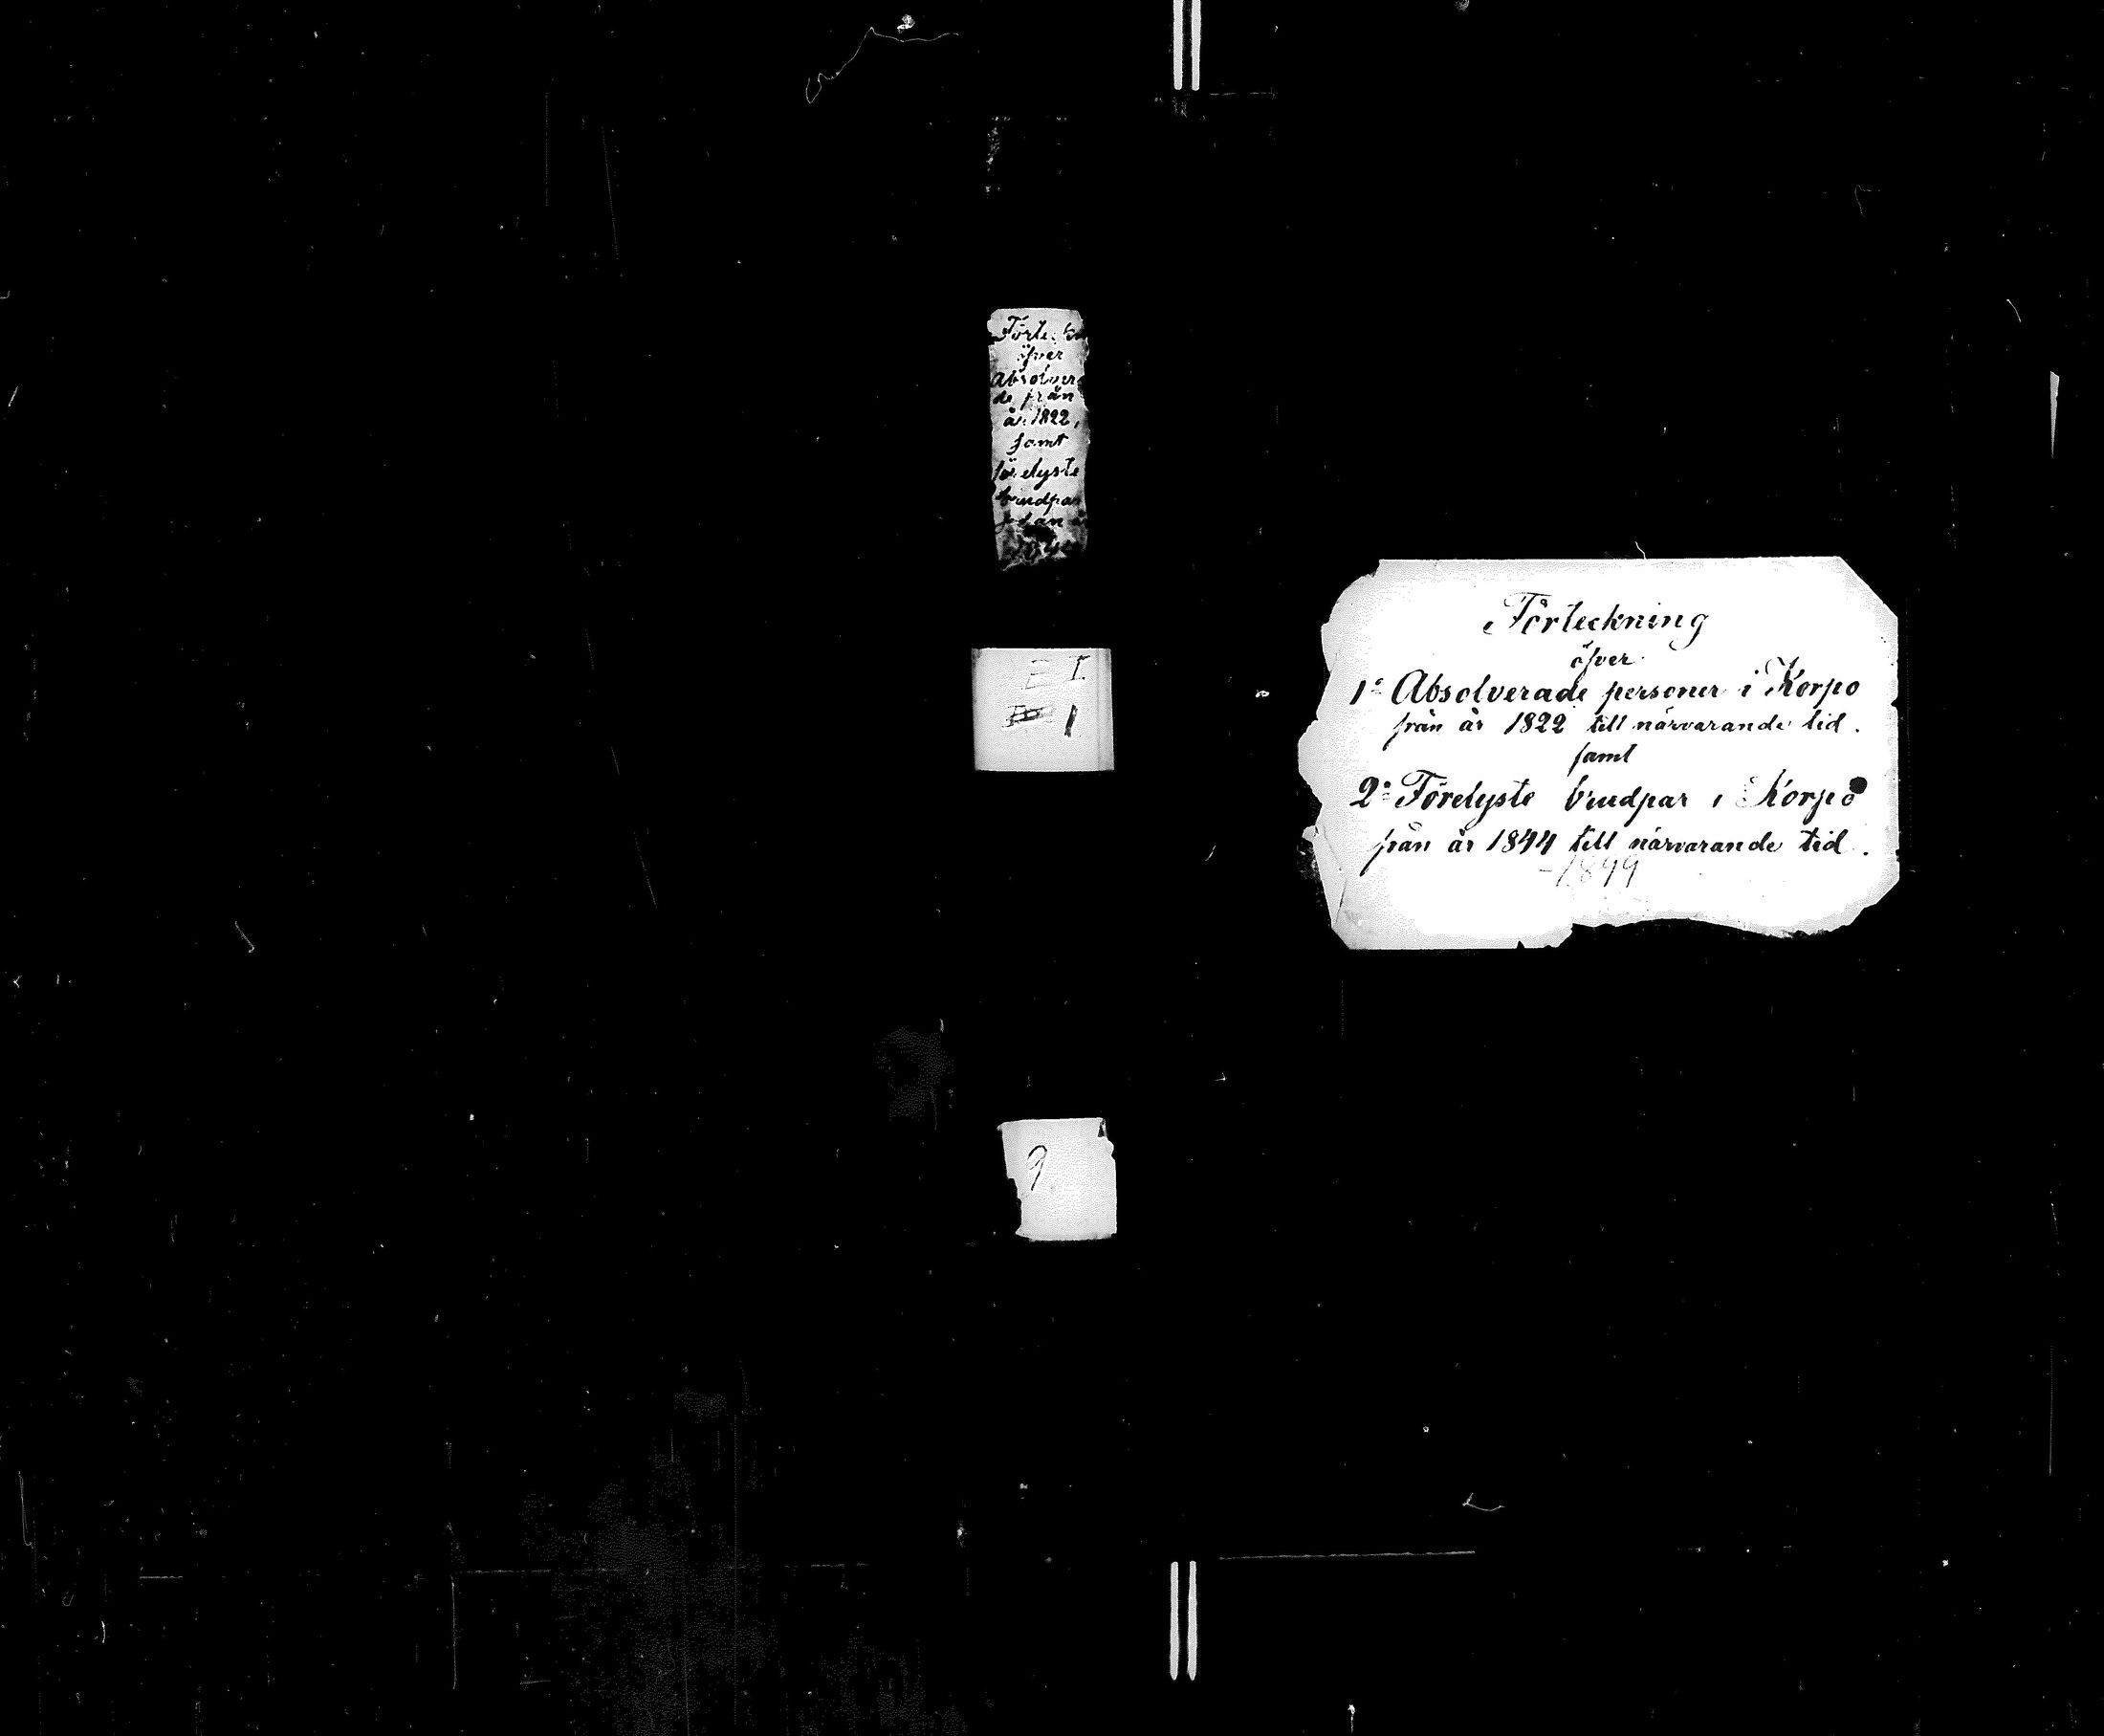 öfver
Absolver
de från
år 1822,
samt
förelyste
brudpar
E I
1
9
Förteckning
öfver
1º Absolverade personer i Korpo
från år 1822 till närvarande tid.
samt
2º Förelyste brudpar i Korpo
från år 1844 till närvarande tid.
-1899